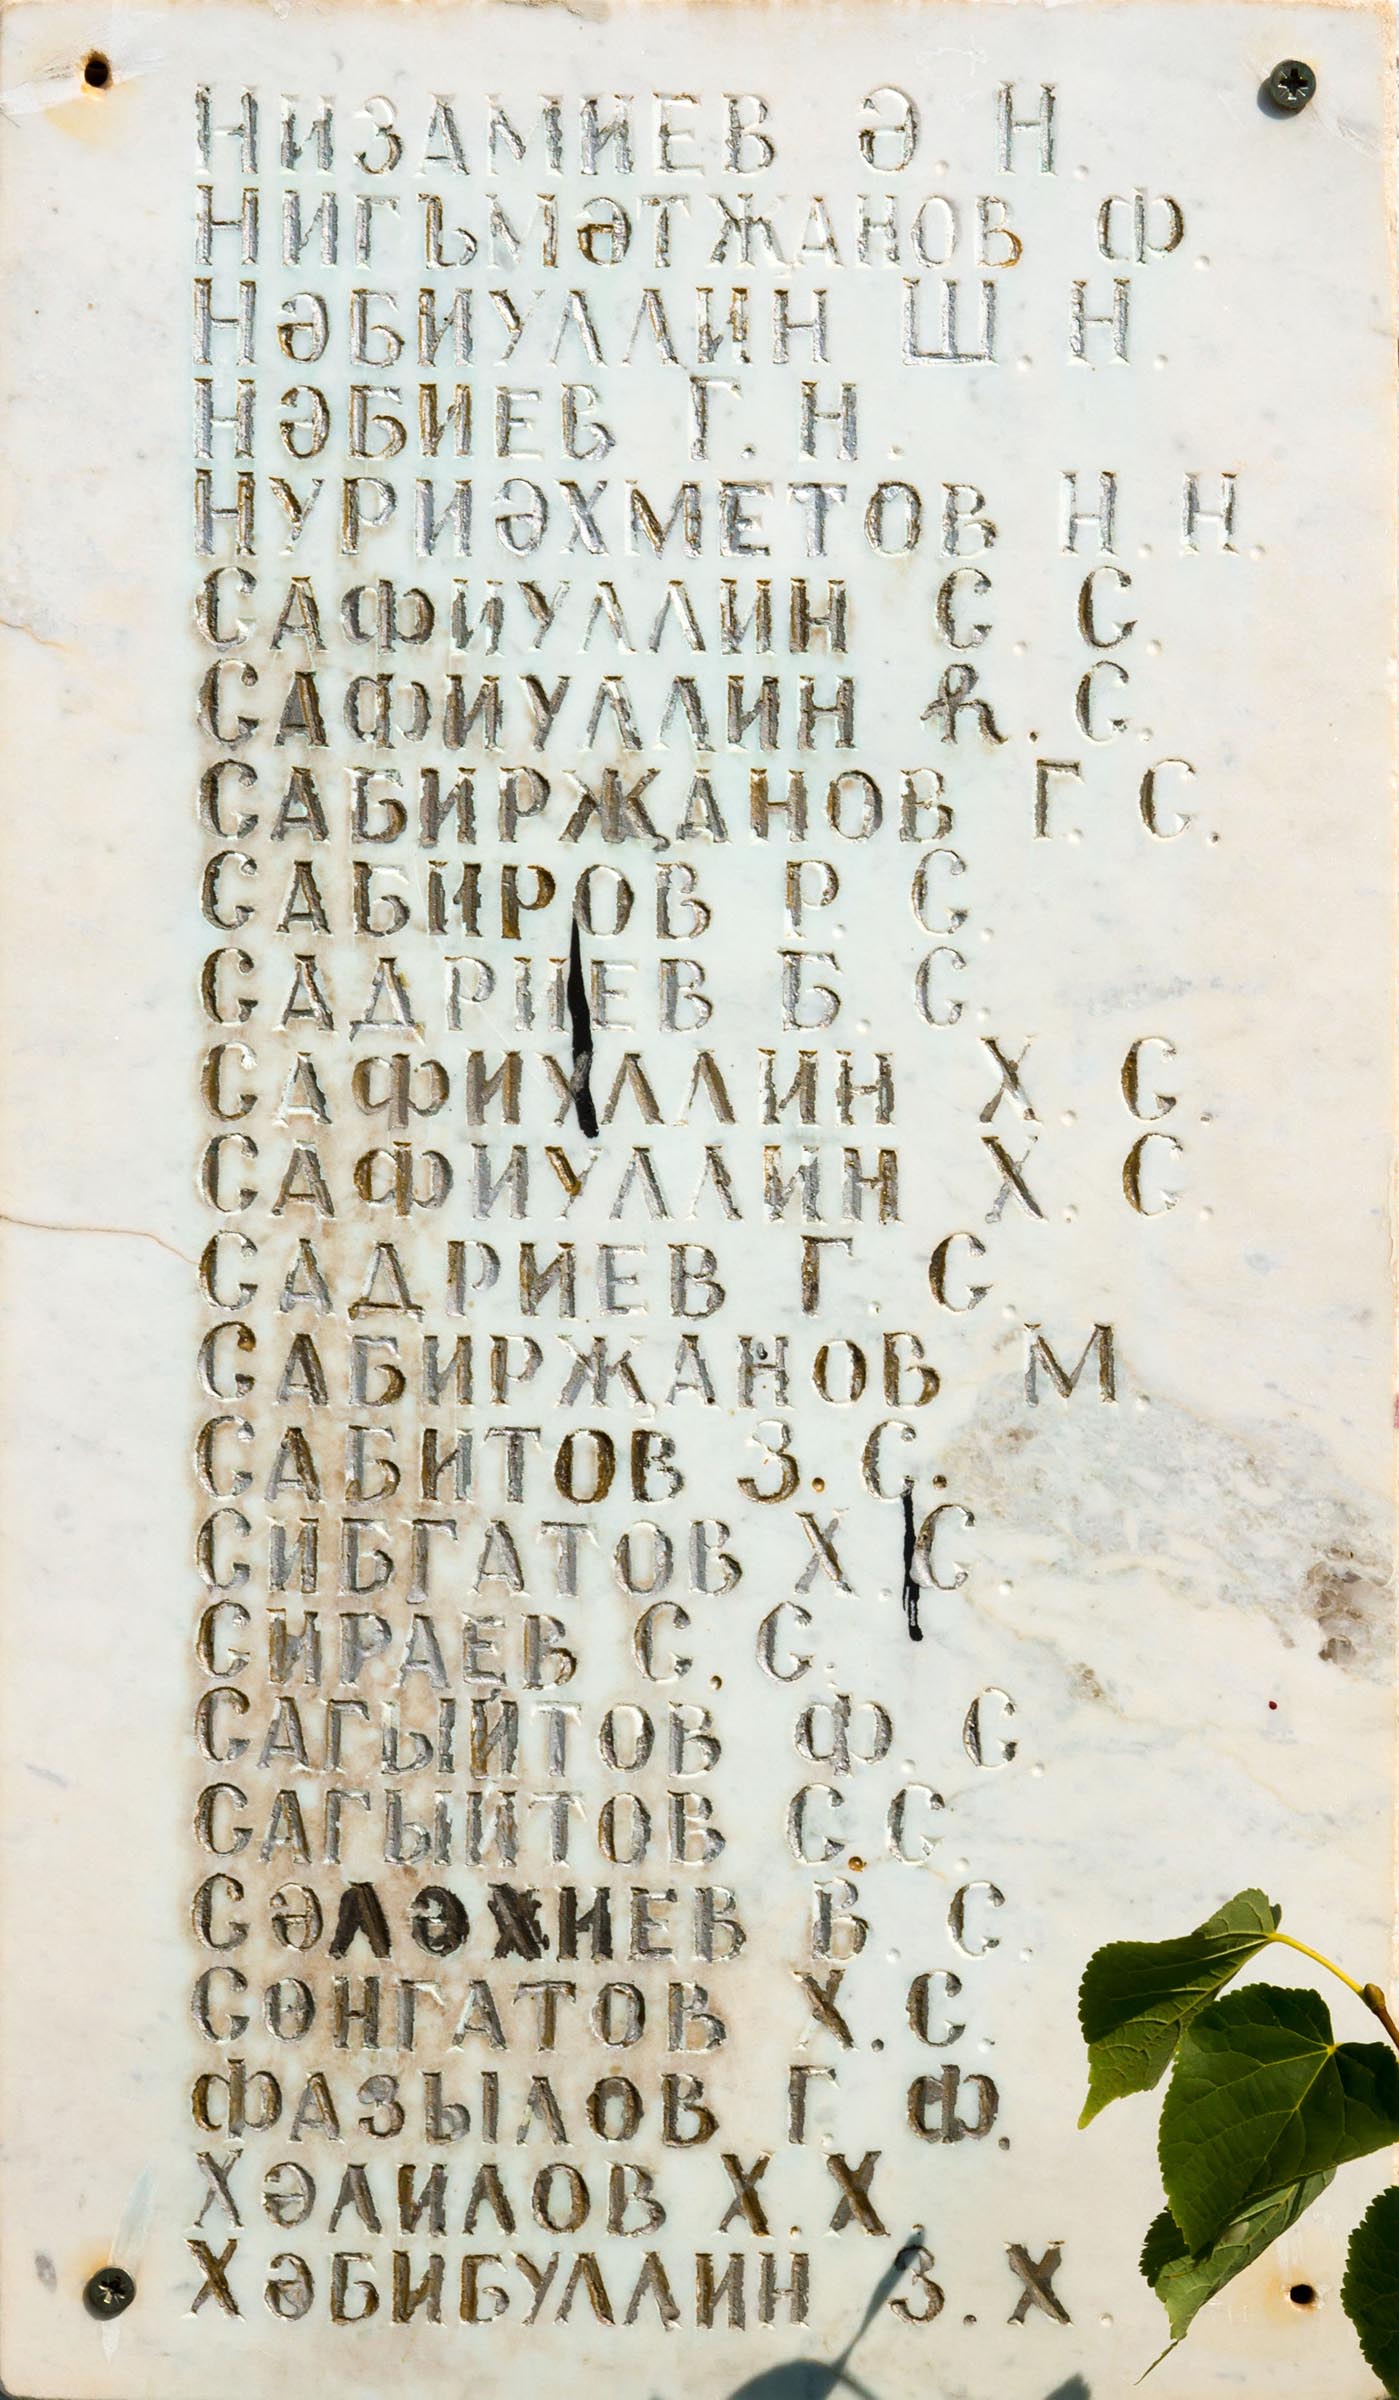 НИЗАМИЕВ Ә. Н.
НИГЪМӘТҖАНОВ Ф.
НӘБИУЛЛИН Ш. Н.
НӘБИЕВ Г. Н.
НУРИӘХМЕТОВ Н. Н.
САФИУЛЛИН С. С.
САФИУЛЛИН Һ. С.
САБИРҖАНОВ Г. С.
САБИРОВ Р. С.
САДРИЕВ Б. С.
САФИУЛЛИН Х. С.
САФИУЛЛИН Х. С.
САДРИЕВ Г. С.
САБИРҖАНОВ М.
САБИТОВ З. С.
СИБГАТОВ Х. С.
СИРАЕВ С. С.
САГЫЙТОВ Ф. С.
САГЫЙТОВ С. С.
СӘЛӘХИЕВ В. С.
СӨНГАТОВ Х. С.
ФАЗЫЛОВ Г. Ф.
ХӘЛИЛОВ Х. Х.
ХӘБИБУЛЛИН З. Х.